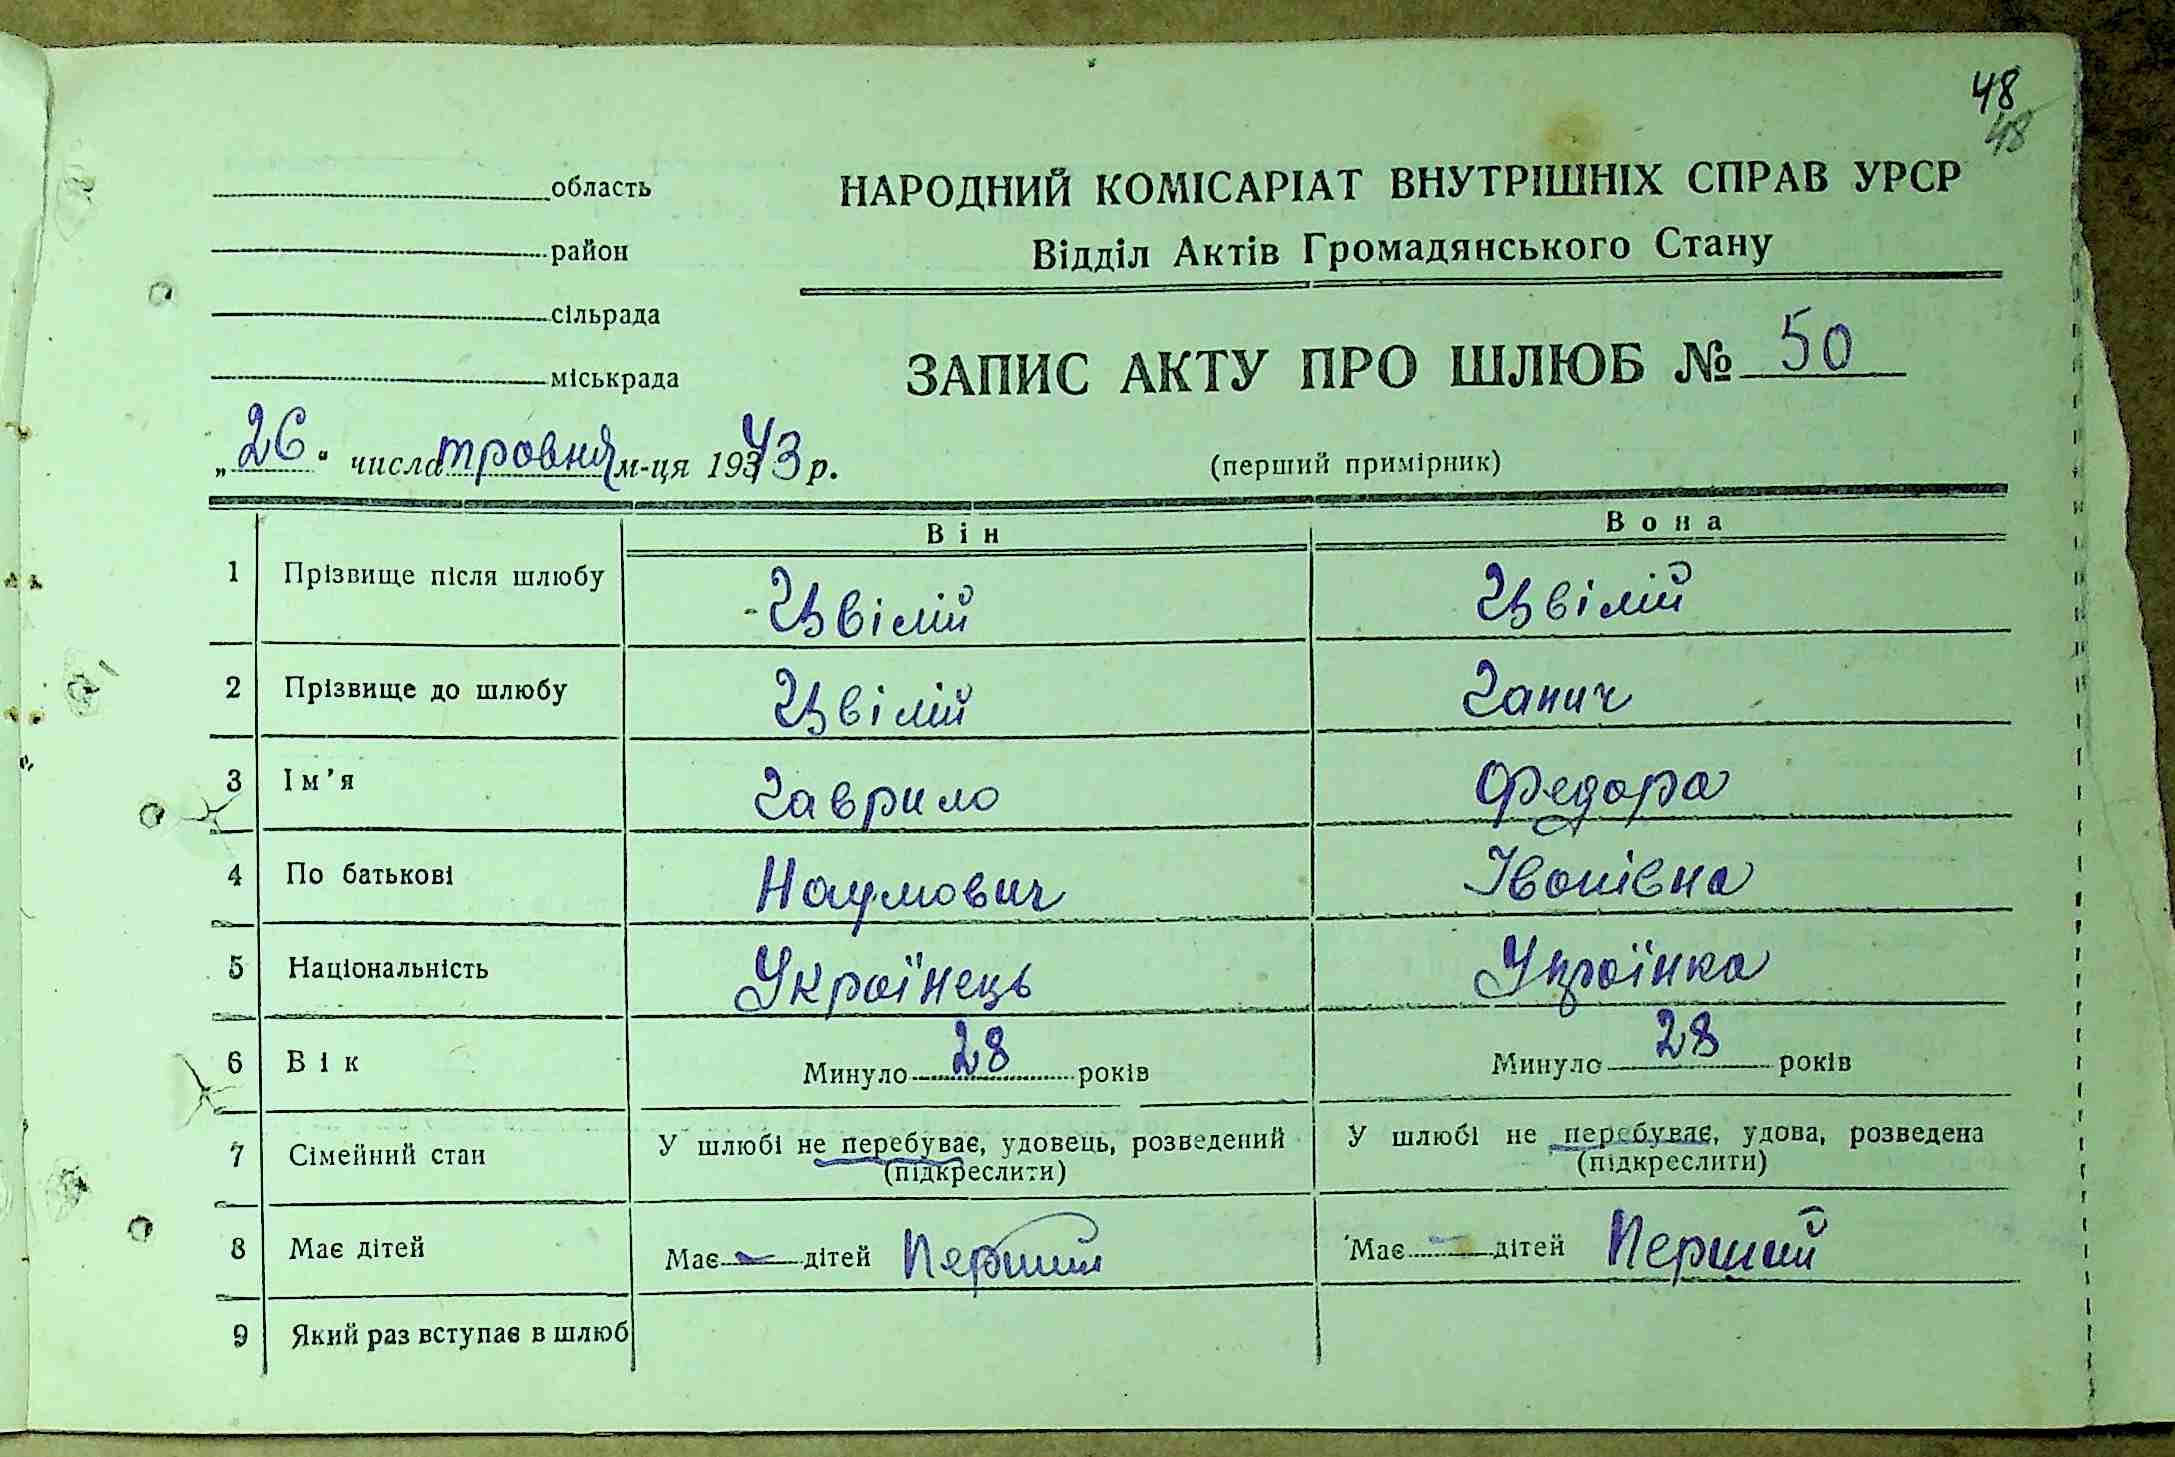 48
48
область
район
сільрада
міськрада
НАРОДНИЙ КОМІСАРІАТ ВНУТРІШНІХ СПРАВ УРСР
Відділ Актів Громадянського Стану
ЗАПИС АКТУ ПРО ШЛЮБ № 50
„26" числа травня м-ця 1943 р.
(перший примірник)
Він Вона
1 Прізвище після шлюбу Цвілій Цвілій
2 Прізвище до шлюбу Цвілій Ганич
3 Ім'я Гаврило Федора
4 По батькові Наумович Іванівна
5 Національність Українець Українка
6 Вік Минуло 28 років Минуло 28 років
7 Сімейний стан У шлюбі не перебуває, удовець, розведений У шлюбі не перебуває, удова, розведена
(підкреслити) (підкреслити)
8 Має дітей Має — дітей Перший Має — дітей Перший
9 Який раз вступає в шлюб